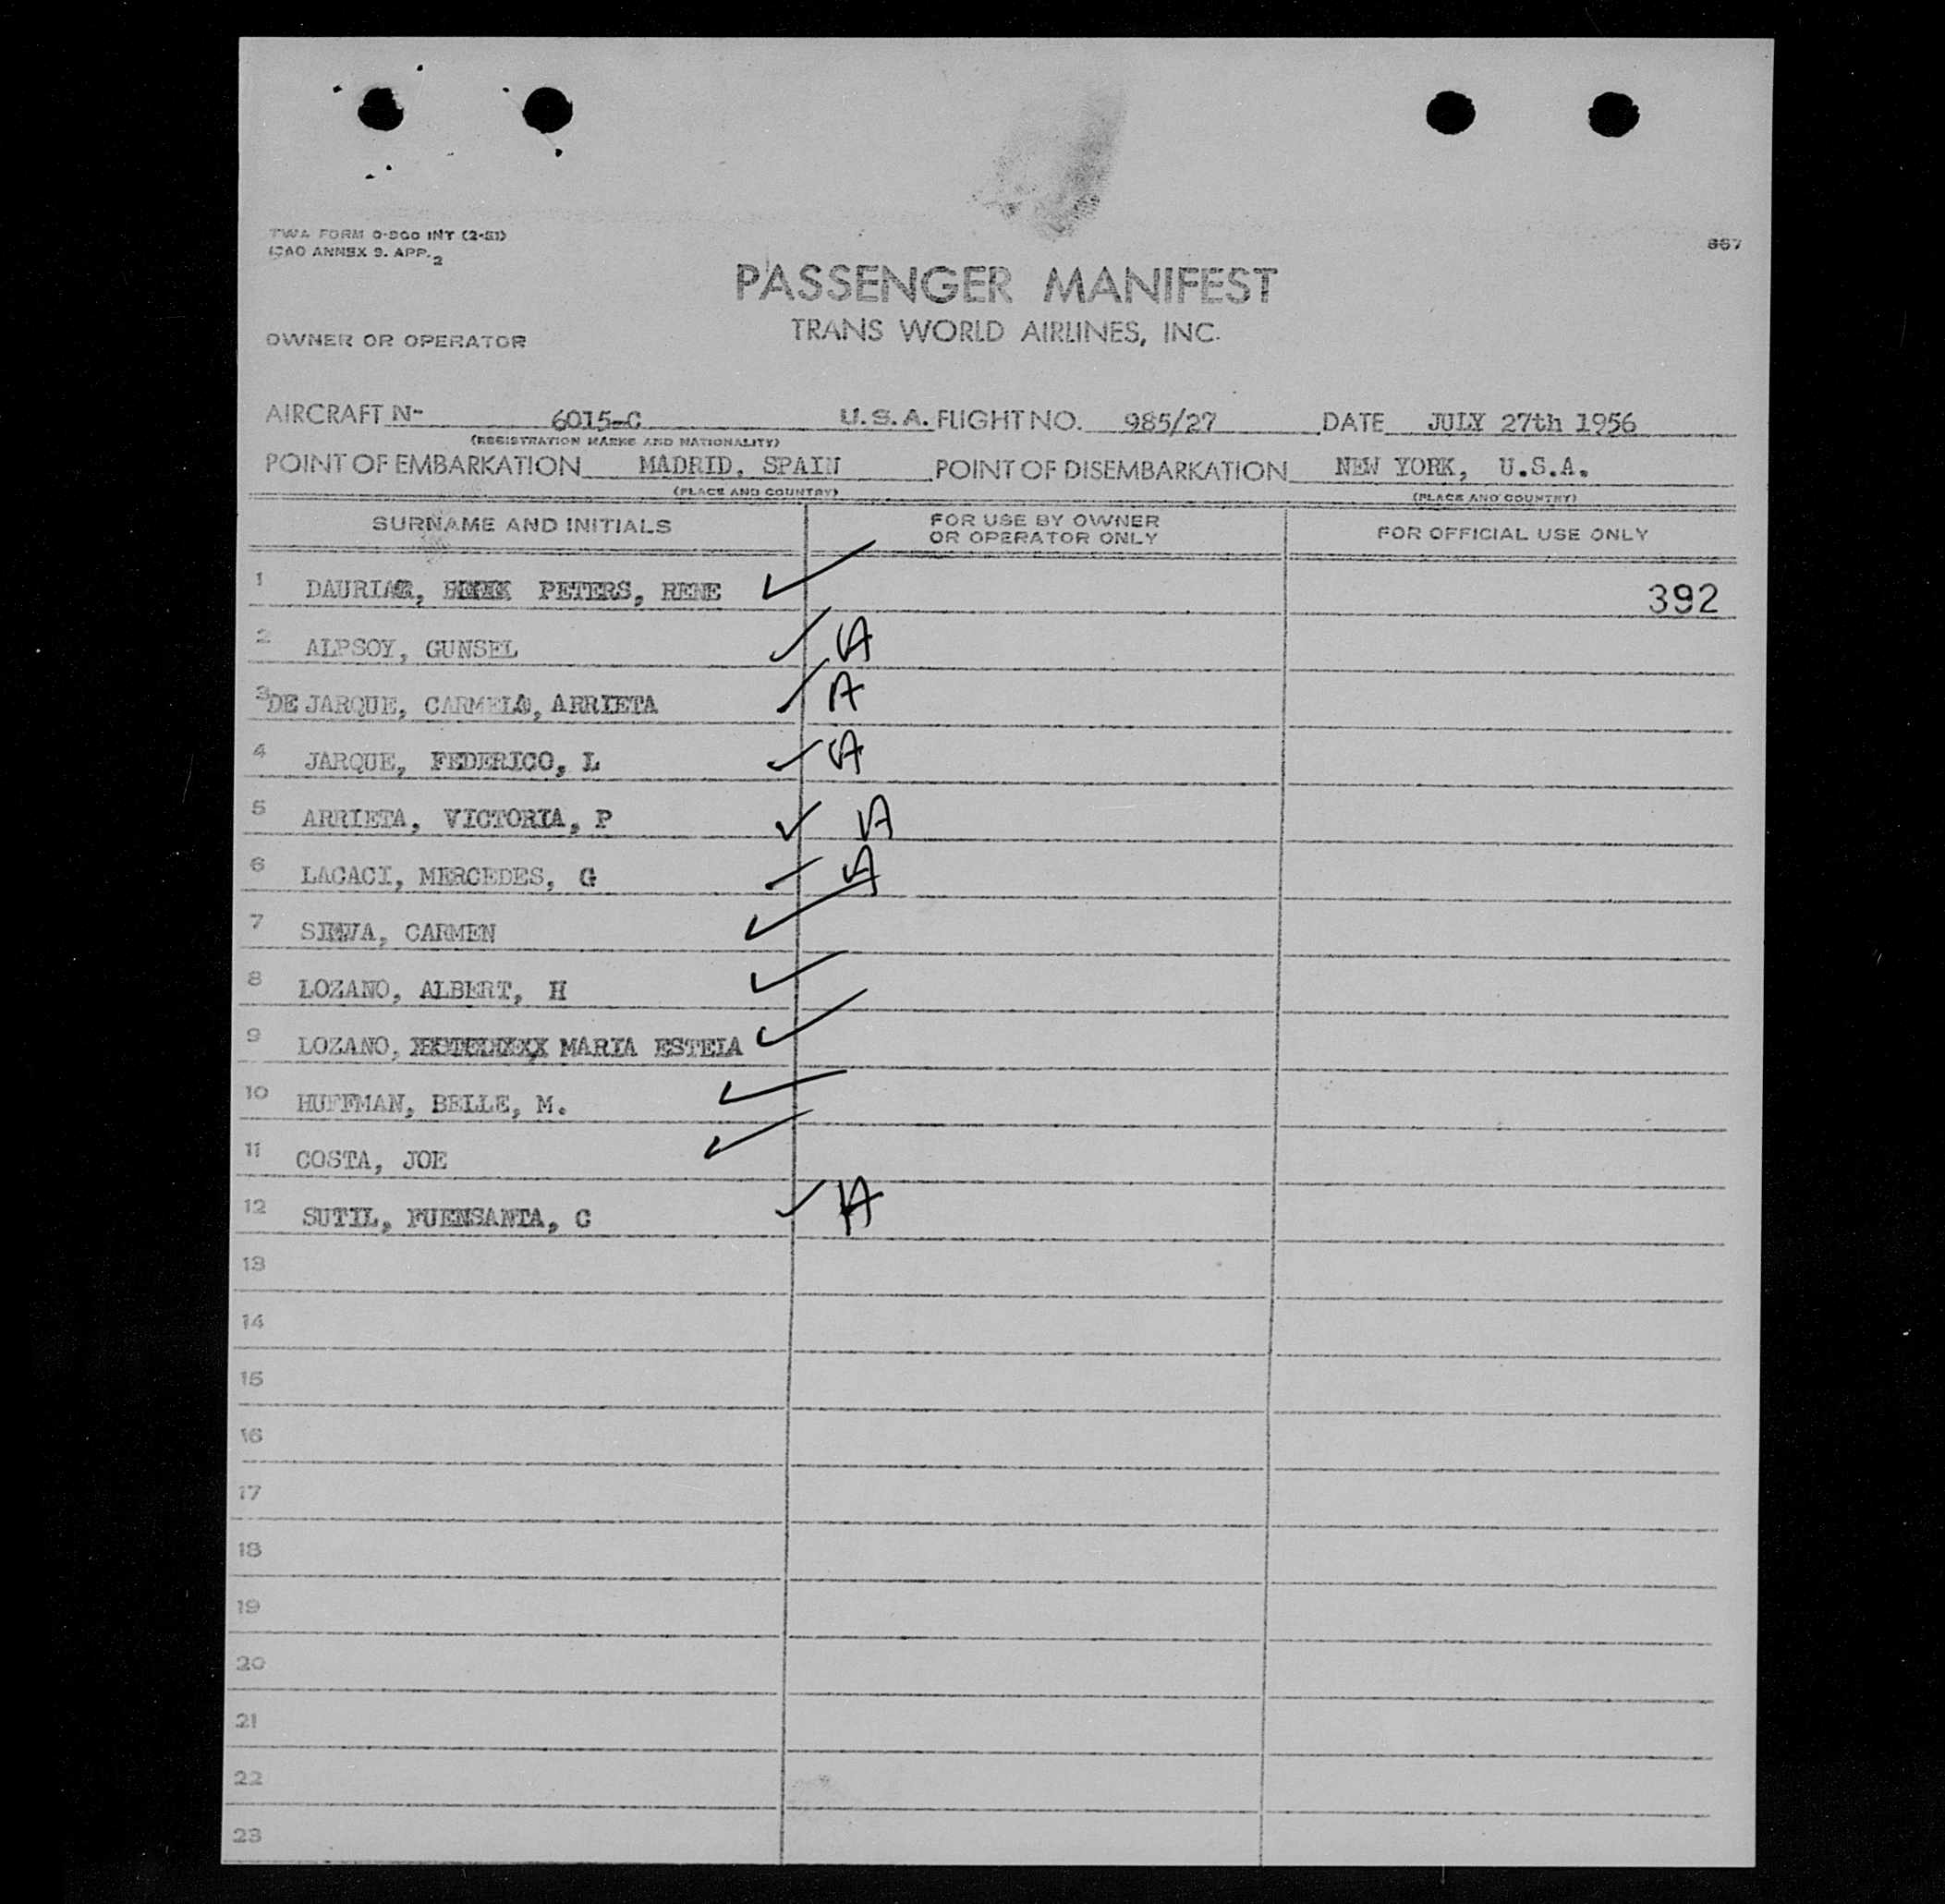 TWA FORM O-900 INT (2-51)
ICAO ANNEX 9. APP. 2
867
PASSENGER MANIFEST
TRANS WORLD AIRLINES, INC.
OWNER OR OPERATOR
AIRCRAFT N- 6015-C U.S.A. FLIGHT NO. 985/27 DATE JULY 27th 1956
(REGISTRATION MARKS AND NATIONALITY)
POINT OF EMBARKATION MADRID, SPAIN POINT OF DISEMBARKATION NEW YORK, U.S.A.
(PLACE AND COUNTRY) (PLACE AND COUNTRY)
SURNAME AND INITIALS FOR USE BY OWNER OR OPERATOR ONLY FOR OFFICIAL USE ONLY
1 PETERS, RENE ✓ 392
2 ALPSOY, GUNSEL ✓ A
3 DE JARQUE, CARMELA, ARRIETA ✓ A
4 JARQUE, FEDERICO, L ✓ A
5 ARRIETA, VICTORIA, P ✓ A
6 LACACI, MERCEDES, G ✓ A
7 CARMEN ✓
8 LOZANO, ALBERT, H ✓
9 LOZANO, MARIA ESTELA ✓
10 HUFFMAN, BELLE, M. ✓
11 COSTA, JOE ✓
12 SUTIL, FUENSANTA, C ✓ A
13
14
15
16
17
18
19
20
21
22
23